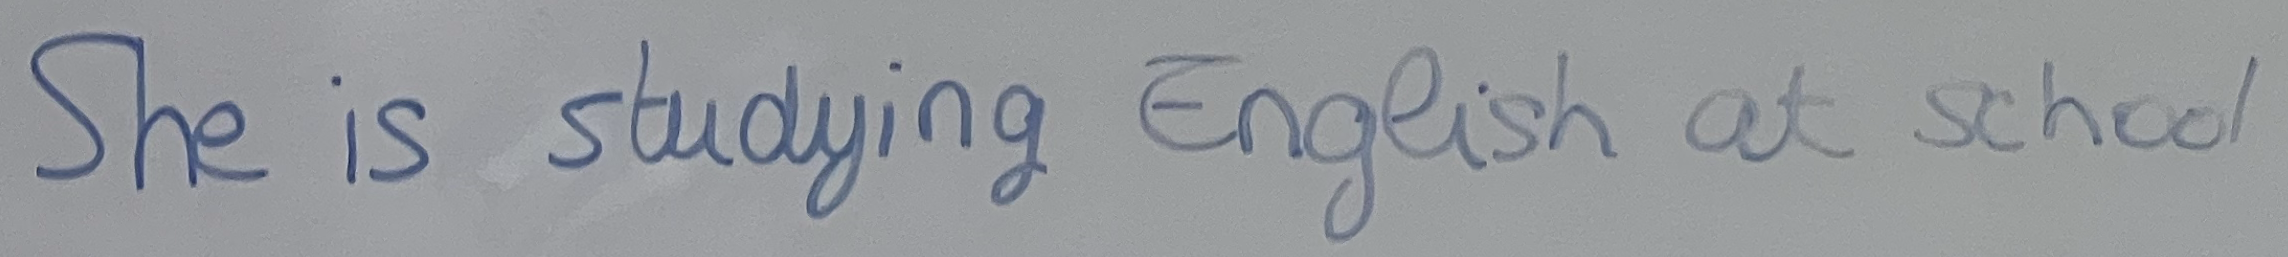 She is studying English at school